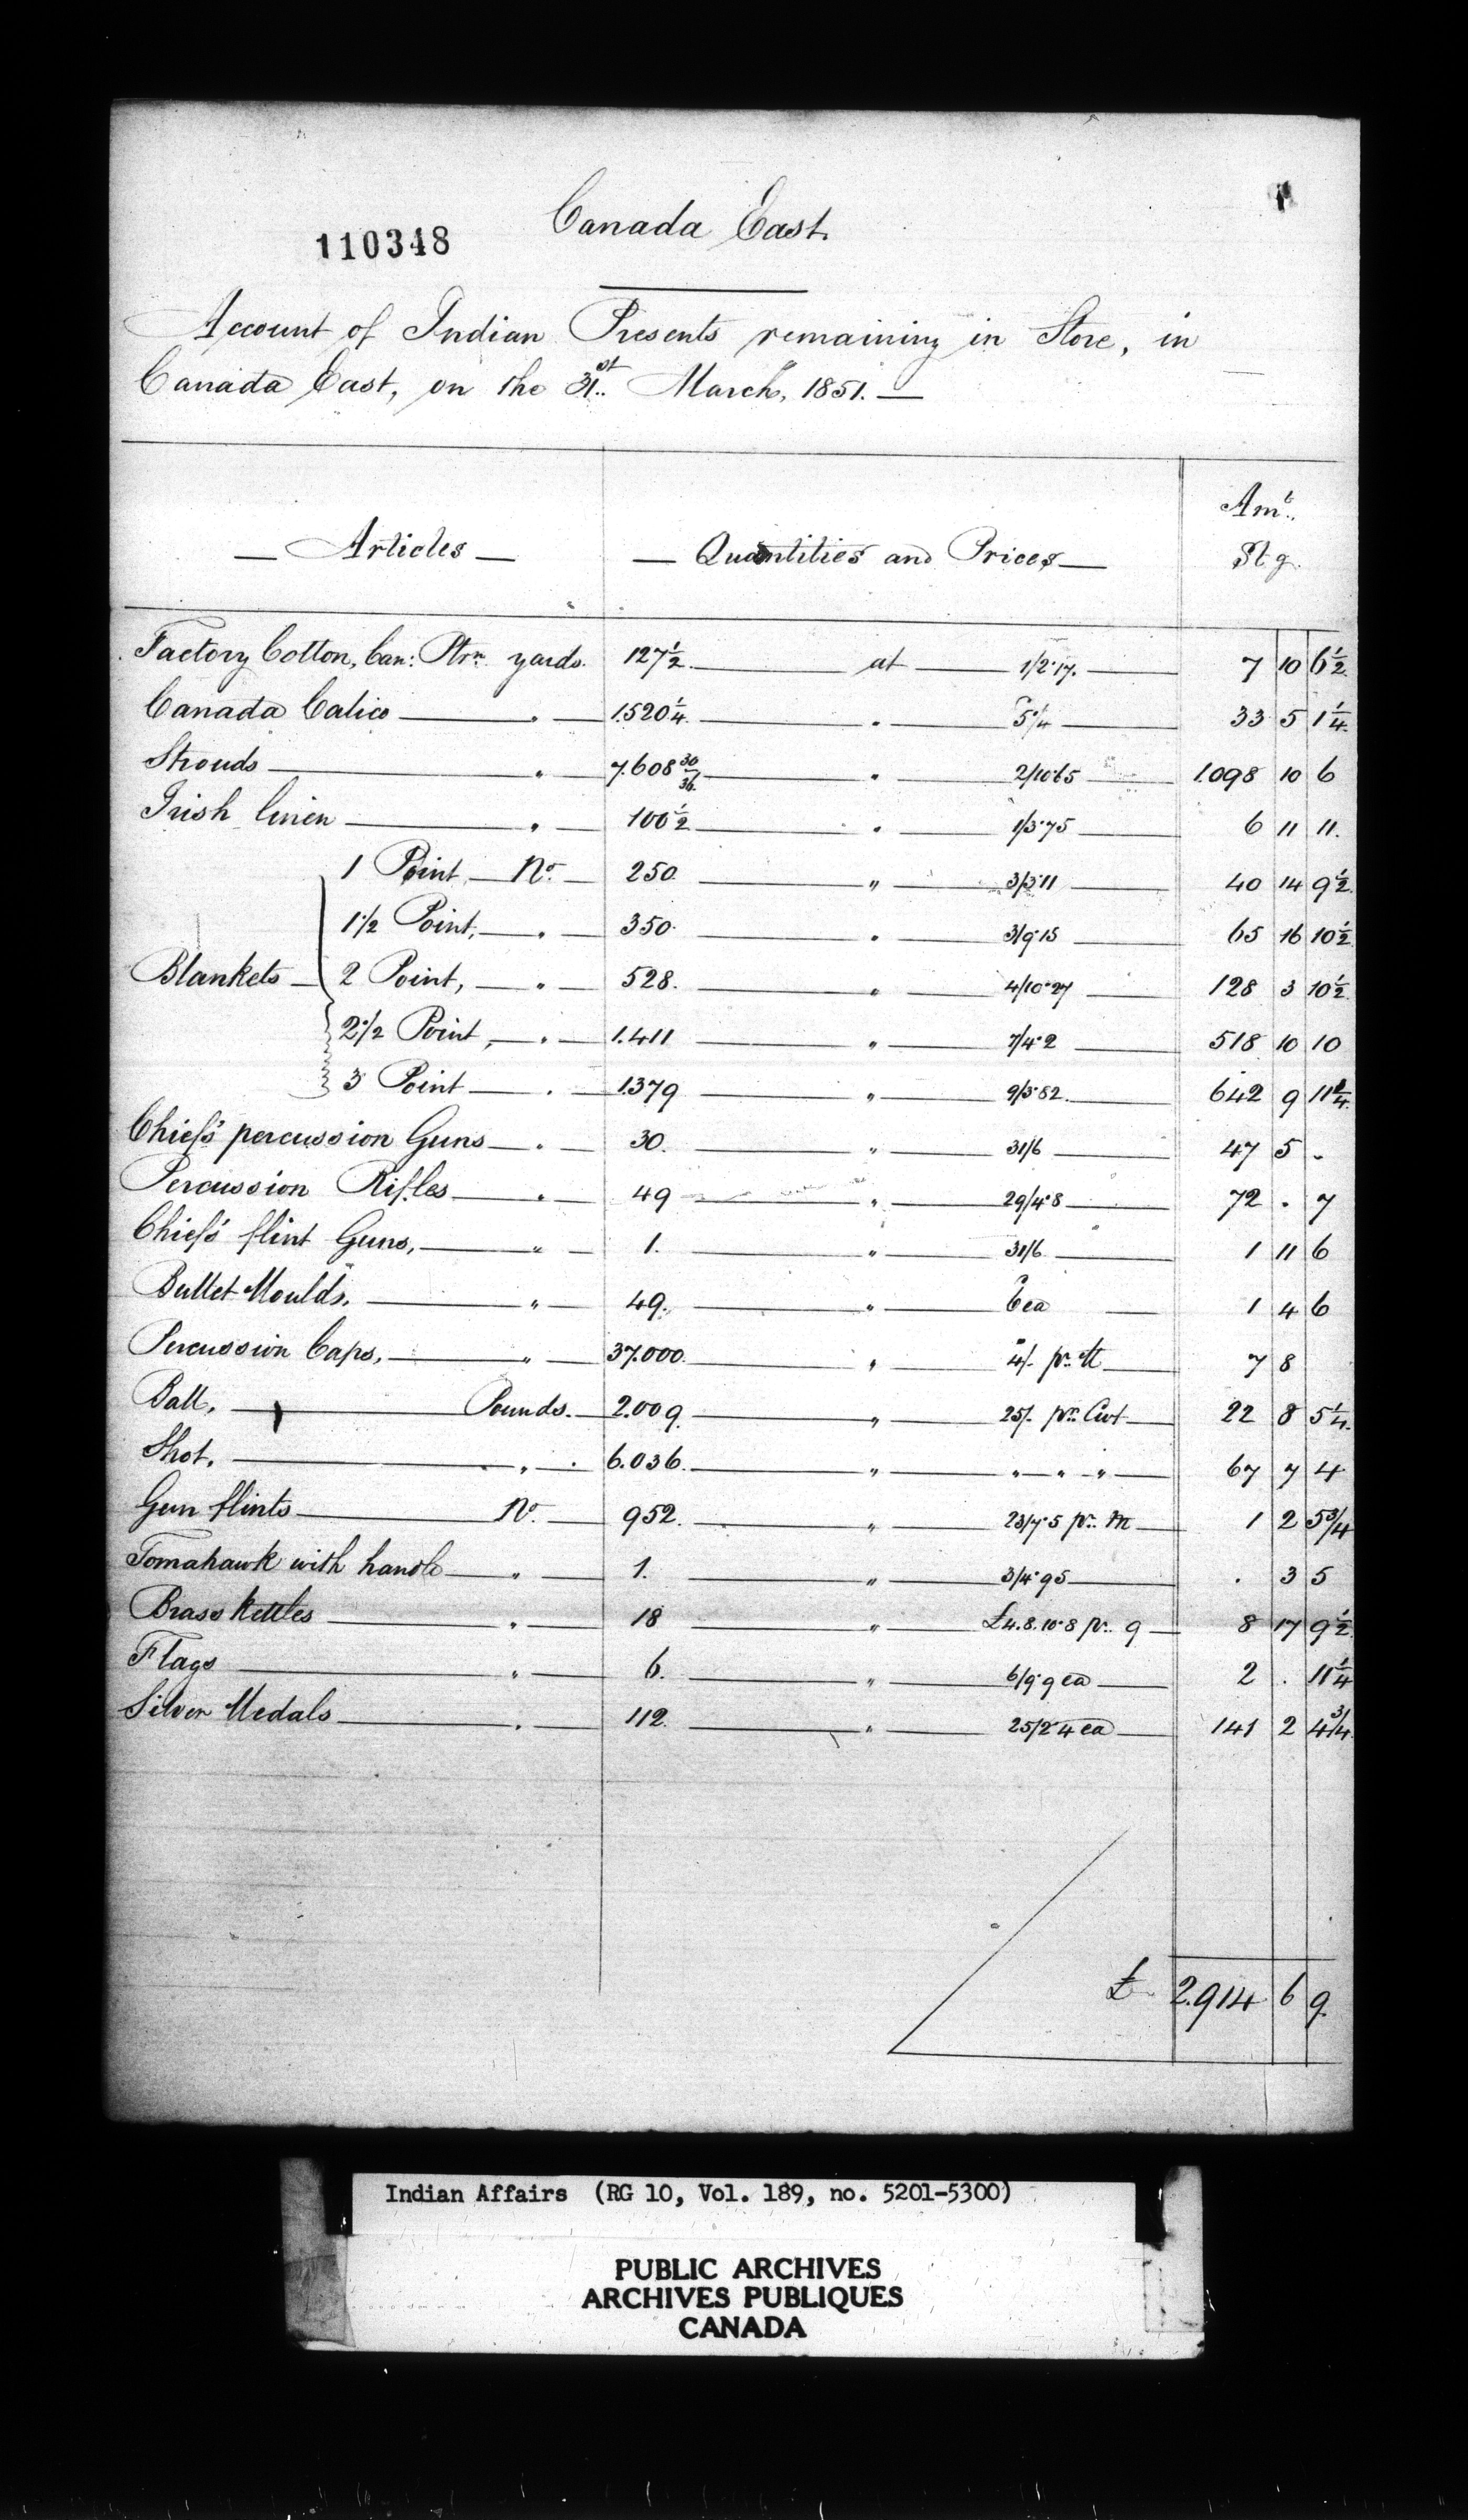 110348
Canada East.
Account of Indian Presents remaining in Store, in
Canada East, on the 31st March, 1851. —
— Articles — — Quantities and Prices — Amt. Stg.
Factory Cotton, Can: Ptrn yards. 127½ at 1/2·17. 7 10 6½
Canada Calico " 1.520¼ " 5¼ 33 5 1¼
Strouds " 7.608 30/36 " 2/10·65 1.098 10 6
Irish linen " 100½ " 1/3·75 6 11 11.
Blankets { 1 Point No. 250 " 3/3·11 40 14 9½
1½ Point, " 350 " 3/9·15 65 16 10½
2 Point, " 528. " 4/10·27 128 3 10½
2½ Point, " 1.411 " 7/4·2 518 10 10
3 Point " 1.379 " 9/3·82 642 9 11¼
Chiefs' percussion Guns " 30. " 31/6 47 5 "
Percussion Rifles " 49 " 29/4·8 72 . 7
Chiefs' flint Guns, " 1. " 31/6 1 11 6
Bullet Moulds, " 49. " 6 ea 1 4 6
Percussion Caps, " 37.000 " 4/. pr. M 7 8
Ball, Pounds. 2.009. " 25/. pr. Cwt 22 8 5¼
Shot, " 6.036. " " " " 67 7 4
Gun flints No. 952. " 23/7·5 pr. M 1 2 5¾
Tomahawk with handle " 1. " 3/4·95 . 3 5
Brass Kettles " 18 " £4.8.10·8 pr. 9 8 17 9½
Flags " 6. " 6/9·9 ea 2 . 11¼
Silver Medals " 112. " 25/2·4 ea 141 2 4¾
£ 2.914 6 9.
Indian Affairs (RG 10, Vol. 189, no. 5201-5300)
PUBLIC ARCHIVES
ARCHIVES PUBLIQUES
CANADA